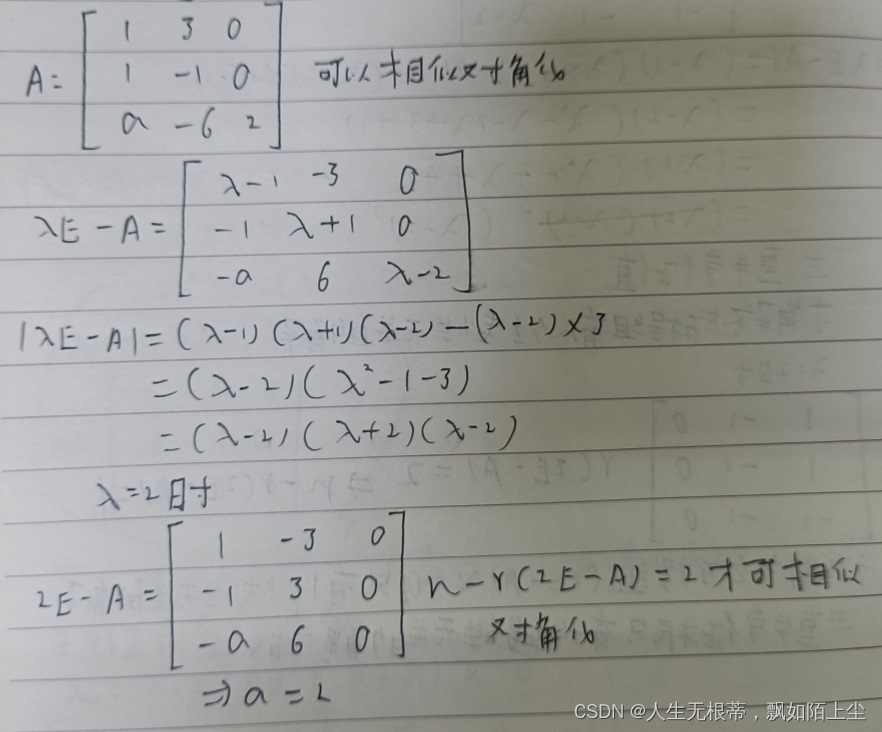 A= [ 1 3 0
1 -1 0
a -6 2 ] 可以相似对角化
λE-A= [ λ-1 -3 0
-1 λ+1 0
-a 6 λ-2 ]
|λE-A|=(λ-1)(λ+1)(λ-2)-(λ-2)×3
=(λ-2)(λ²-1-3)
=(λ-2)(λ+2)(λ-2)
λ=2时
2E-A= [ 1 -3 0
-1 3 0
-a 6 0 ] n-r(2E-A)=2才可相似
对角化
⇒a=2
CSDN @人生无根蒂，飘如陌上尘